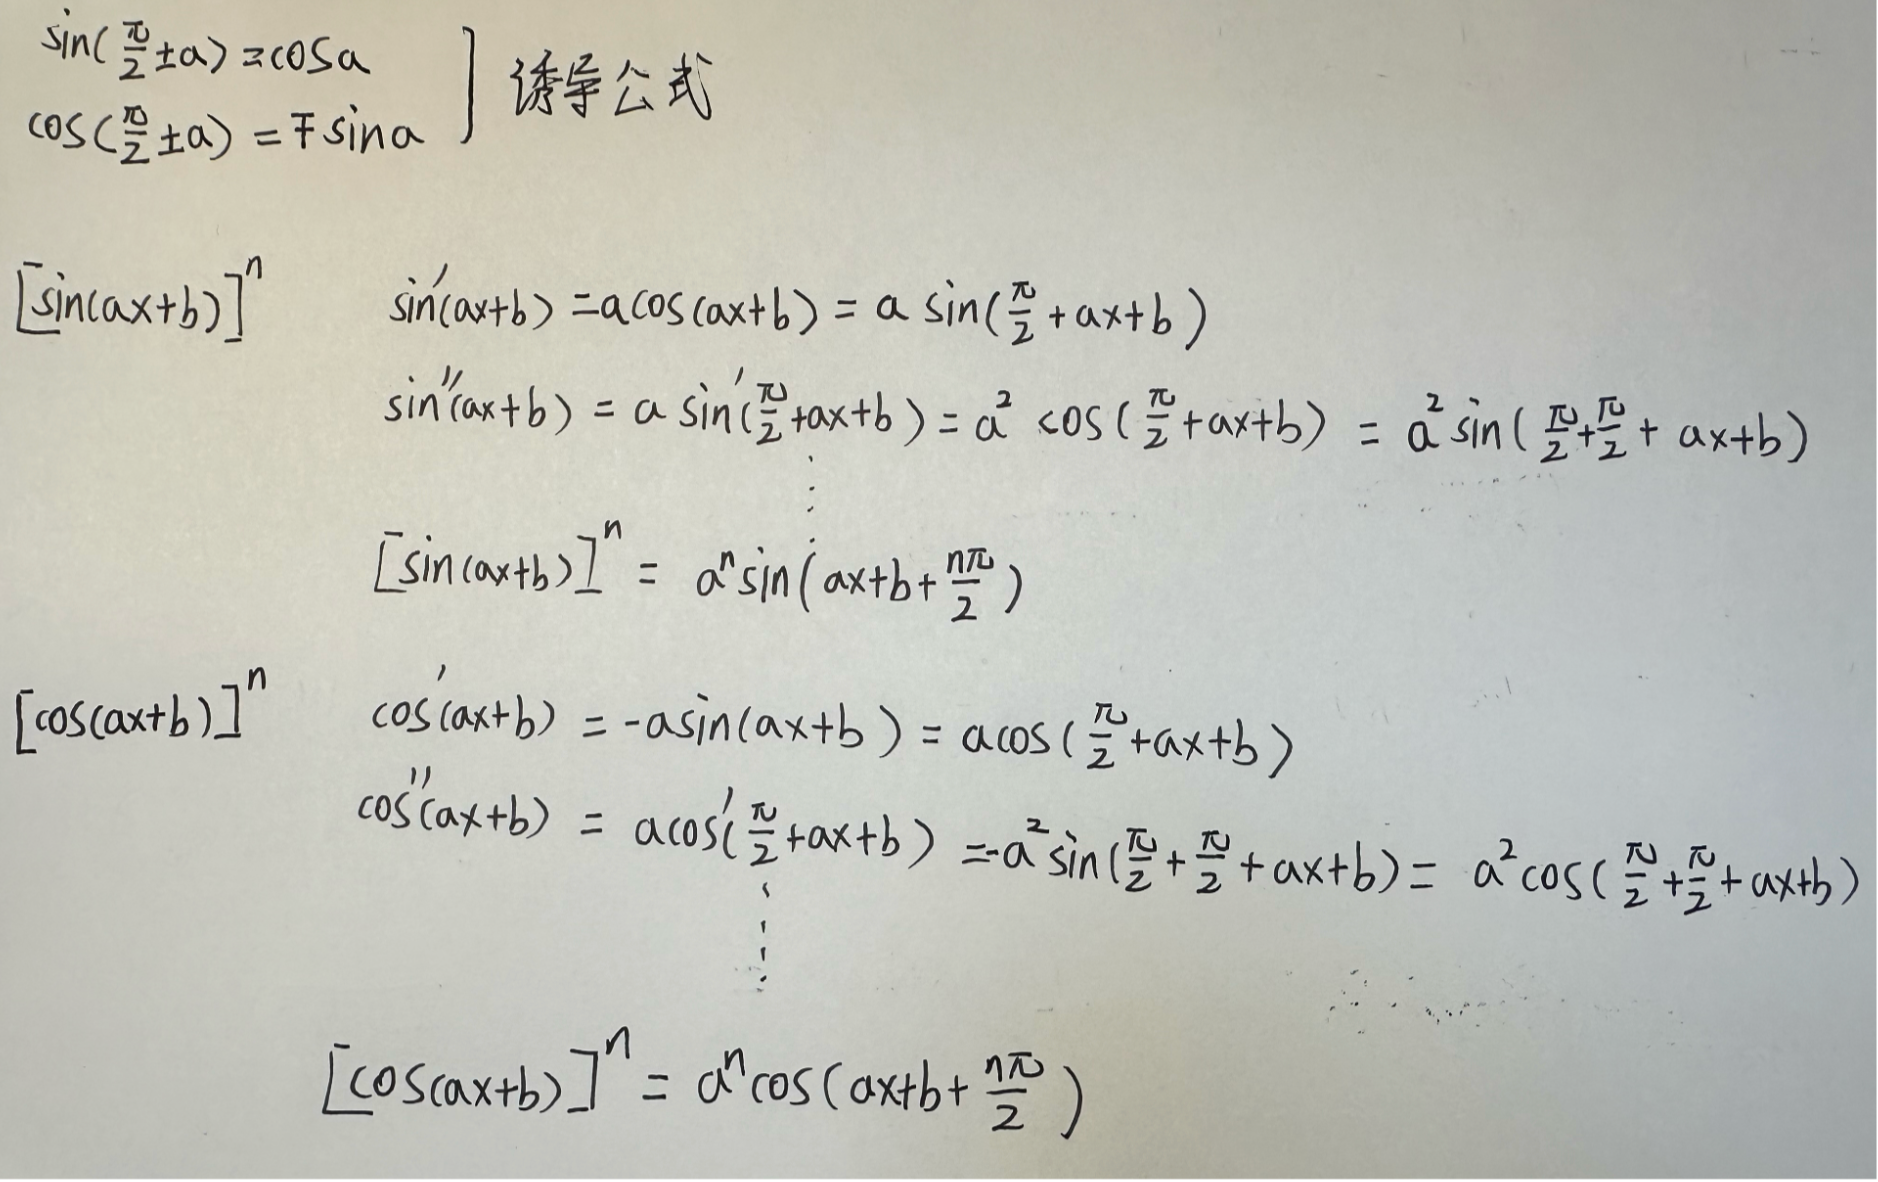 sin(π/2±a)=cosa
cos(π/2±a)=∓sina
] 诱导公式
[sin(ax+b)]ⁿ  sin′(ax+b)=acos(ax+b)=a sin(π/2+ax+b)
sin″(ax+b)=a sin′(π/2+ax+b)=a² cos(π/2+ax+b)=a²sin(π/2+π/2+ax+b)
⋮
[sin(ax+b)]ⁿ=aⁿsin(ax+b+nπ/2)
[cos(ax+b)]ⁿ  cos′(ax+b)=-asin(ax+b)=acos(π/2+ax+b)
cos″(ax+b)=acos′(π/2+ax+b)=-a²sin(π/2+π/2+ax+b)=a²cos(π/2+π/2+ax+b)
⋮
[cos(ax+b)]ⁿ=aⁿcos(ax+b+nπ/2)